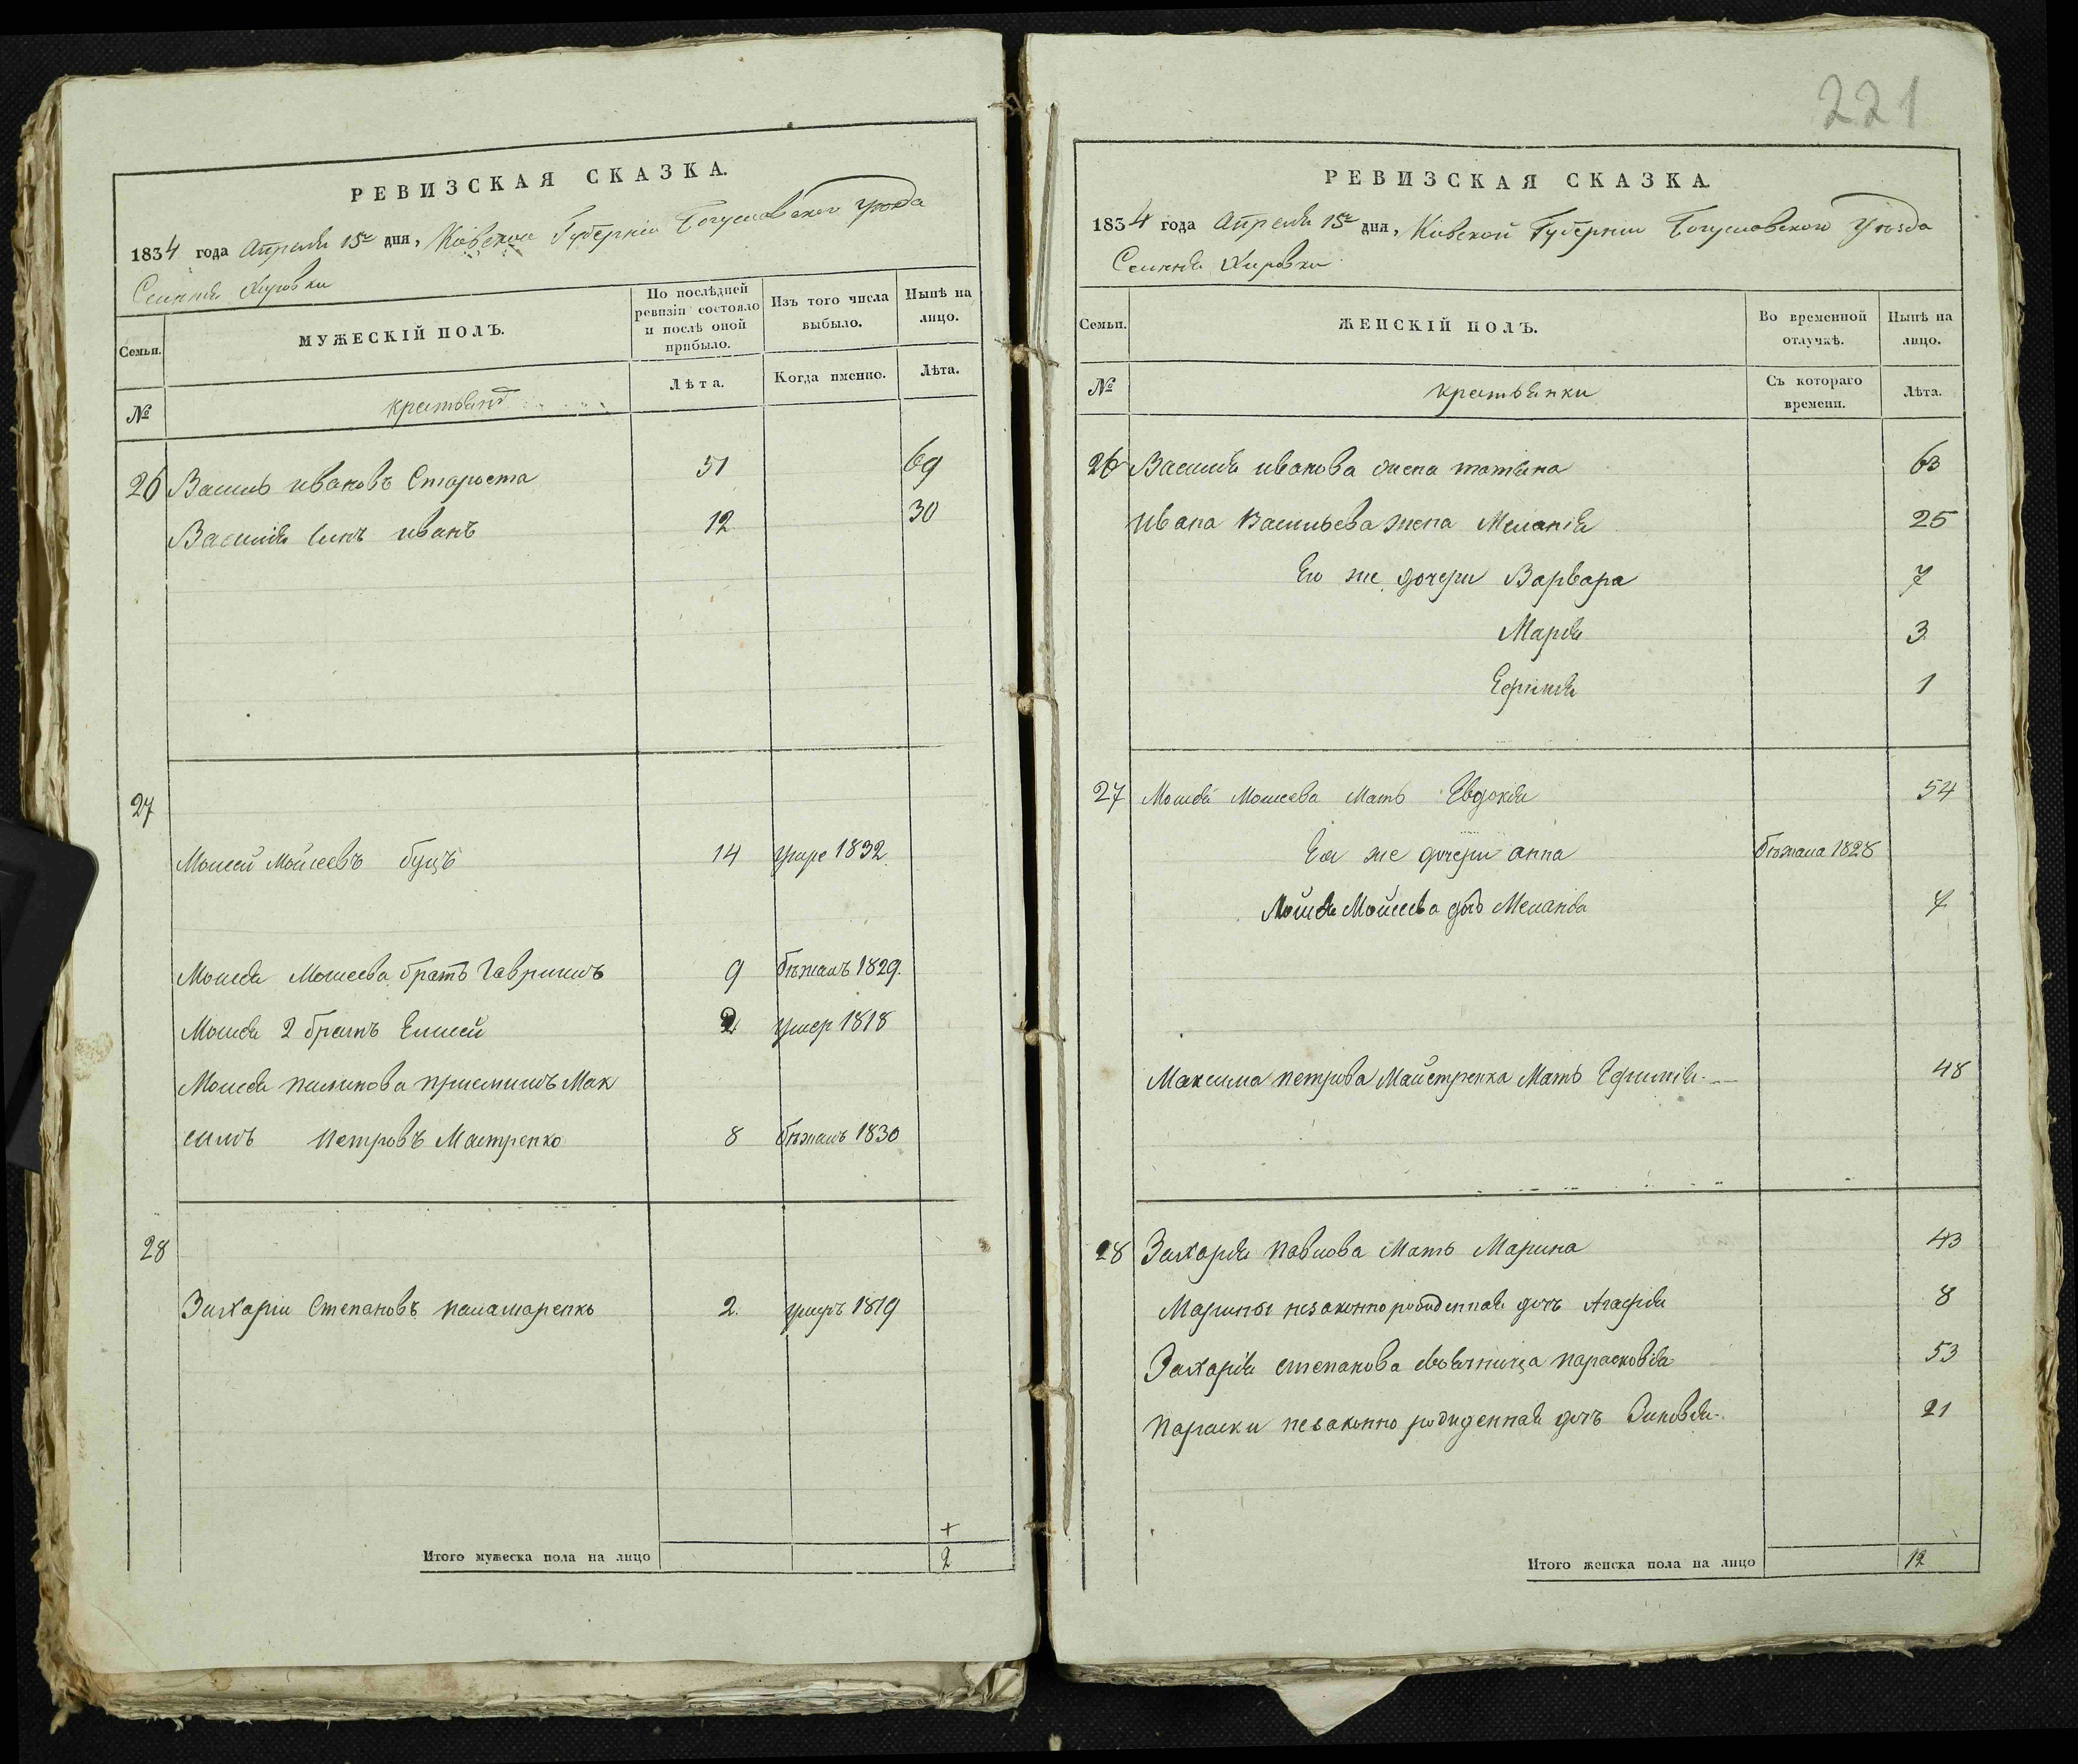 РЕВИЗСКАЯ СКАЗКА.
1834 года Апреля 15го дня, Кіевской Губерніи Богуславского уѣзда
Селенія Хировки
Семьи.
МУЖЕСКІЙ ПОЛЪ.
По послѣдней ревизіи состояло и послѣ оной прибыло.
Изъ того числа выбыло.
Нынѣ на лицо.
№
крестьянъ
Лѣта.
Когда именно.
Лѣта.
26 Василь ивановъ Староста 51 69
Василія сынъ иванъ 12 30
27
Моисей Мойсеевъ буцъ 14 умре 1832
Моисея Моисеева братъ Гавриилъ 9 бѣжалъ 1829.
Моисея 2 братъ Елисей 2 умер 1818
Моисея приемишъ Мак
симъ петровъ Мастренко 8 бѣжалъ 1830
28
Захарій Степановъ паламаренко 2. умеръ 1819
+
Итого мужеска пола на лицо 2
221
РЕВИЗСКАЯ СКАЗКА.
1834 года Апреля 15го дня, Кіевской Губерніи Богуславского Уѣзда
Селенія Хировки
Семьи.
ЖЕНСКІЙ ПОЛЪ.
Во временной отлучкѣ.
Нынѣ на лицо.
№
крестьянки
Съ котораго времени.
Лѣта.
26 Василія иванова жена татьяна 63
ивана Васильева жена Меланія 25
Его же дочери Варвара 7
Марія 3
Ефимія 1
27 Моисея Моисеева Мать Евдокія 54
Ея же дочери анна бѣжала 1828
Мойсея Мойсеева дочь Меланія 7
Максима петрова Майстренка Мать Ефимія 48
28 Захарія павлова Мать Марина 43
Марины незаконнорожденная дочь Агафія 8
Захарія степанова своячница парасковія 53
Параски незаконно рожденная дочь Зиновія 21
Итого женска пола на лицо 12